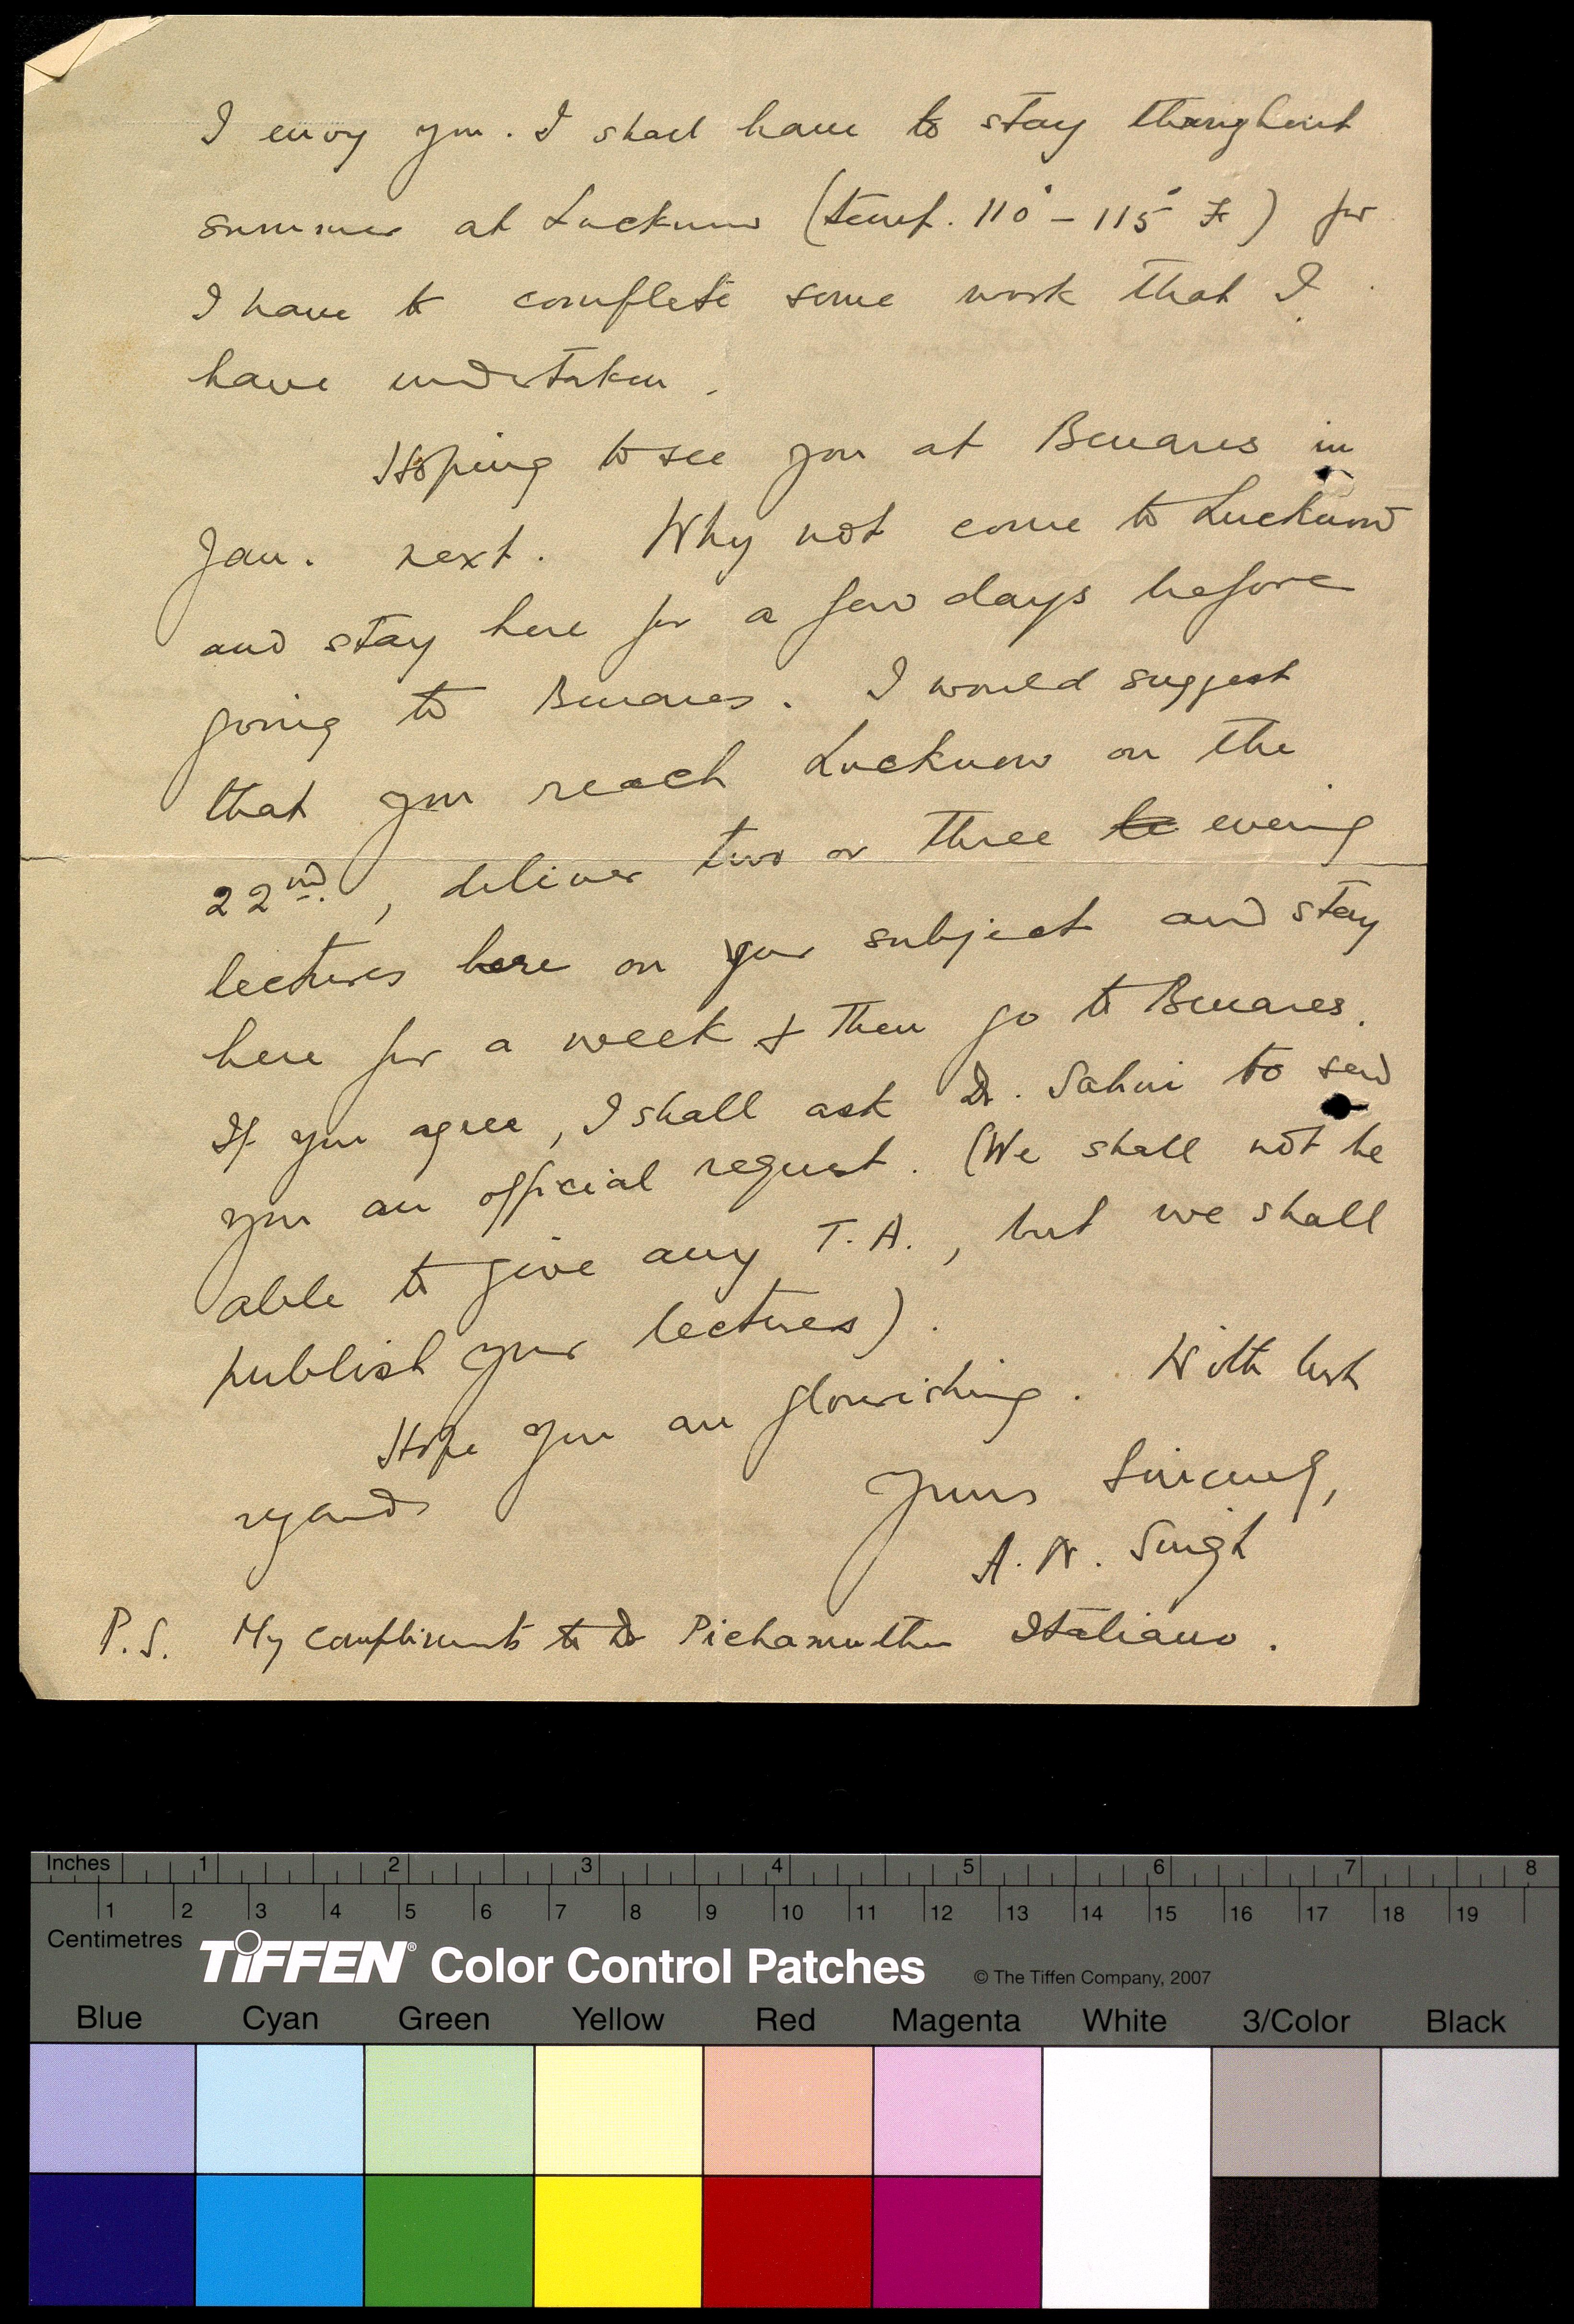 I envy you. I shall have to stay throughout
summer at Lucknow (temp. 110° – 115° F) for
I have to complete some work that I
have undertaken.
Hoping to see you at Benares in
Jan. next. Why not come to Lucknow
and stay here for a few days before
going to Benares. I would suggest
that you reach Lucknow on the
22nd., deliver two or three evening
lectures here on your subject and stay
here for a week & then go to Benares.
If you agree, I shall ask Dr. Sahni to send
you an official request. (We shall not be
able to give any T.A., but we shall
publish your lectures).
Hope you are flourishing. With best
regards
Yours Sincerely,
A. N. Singh
P.S. My compliments to Dr Pichamuthu Italiano.
Inches 1 2 3 4 5 6 7 8
1 2 3 4 5 6 7 8 9 10 11 12 13 14 15 16 17 18 19
Centimetres
TIFFEN® Color Control Patches © The Tiffen Company, 2007
Blue Cyan Green Yellow Red Magenta White 3/Color Black